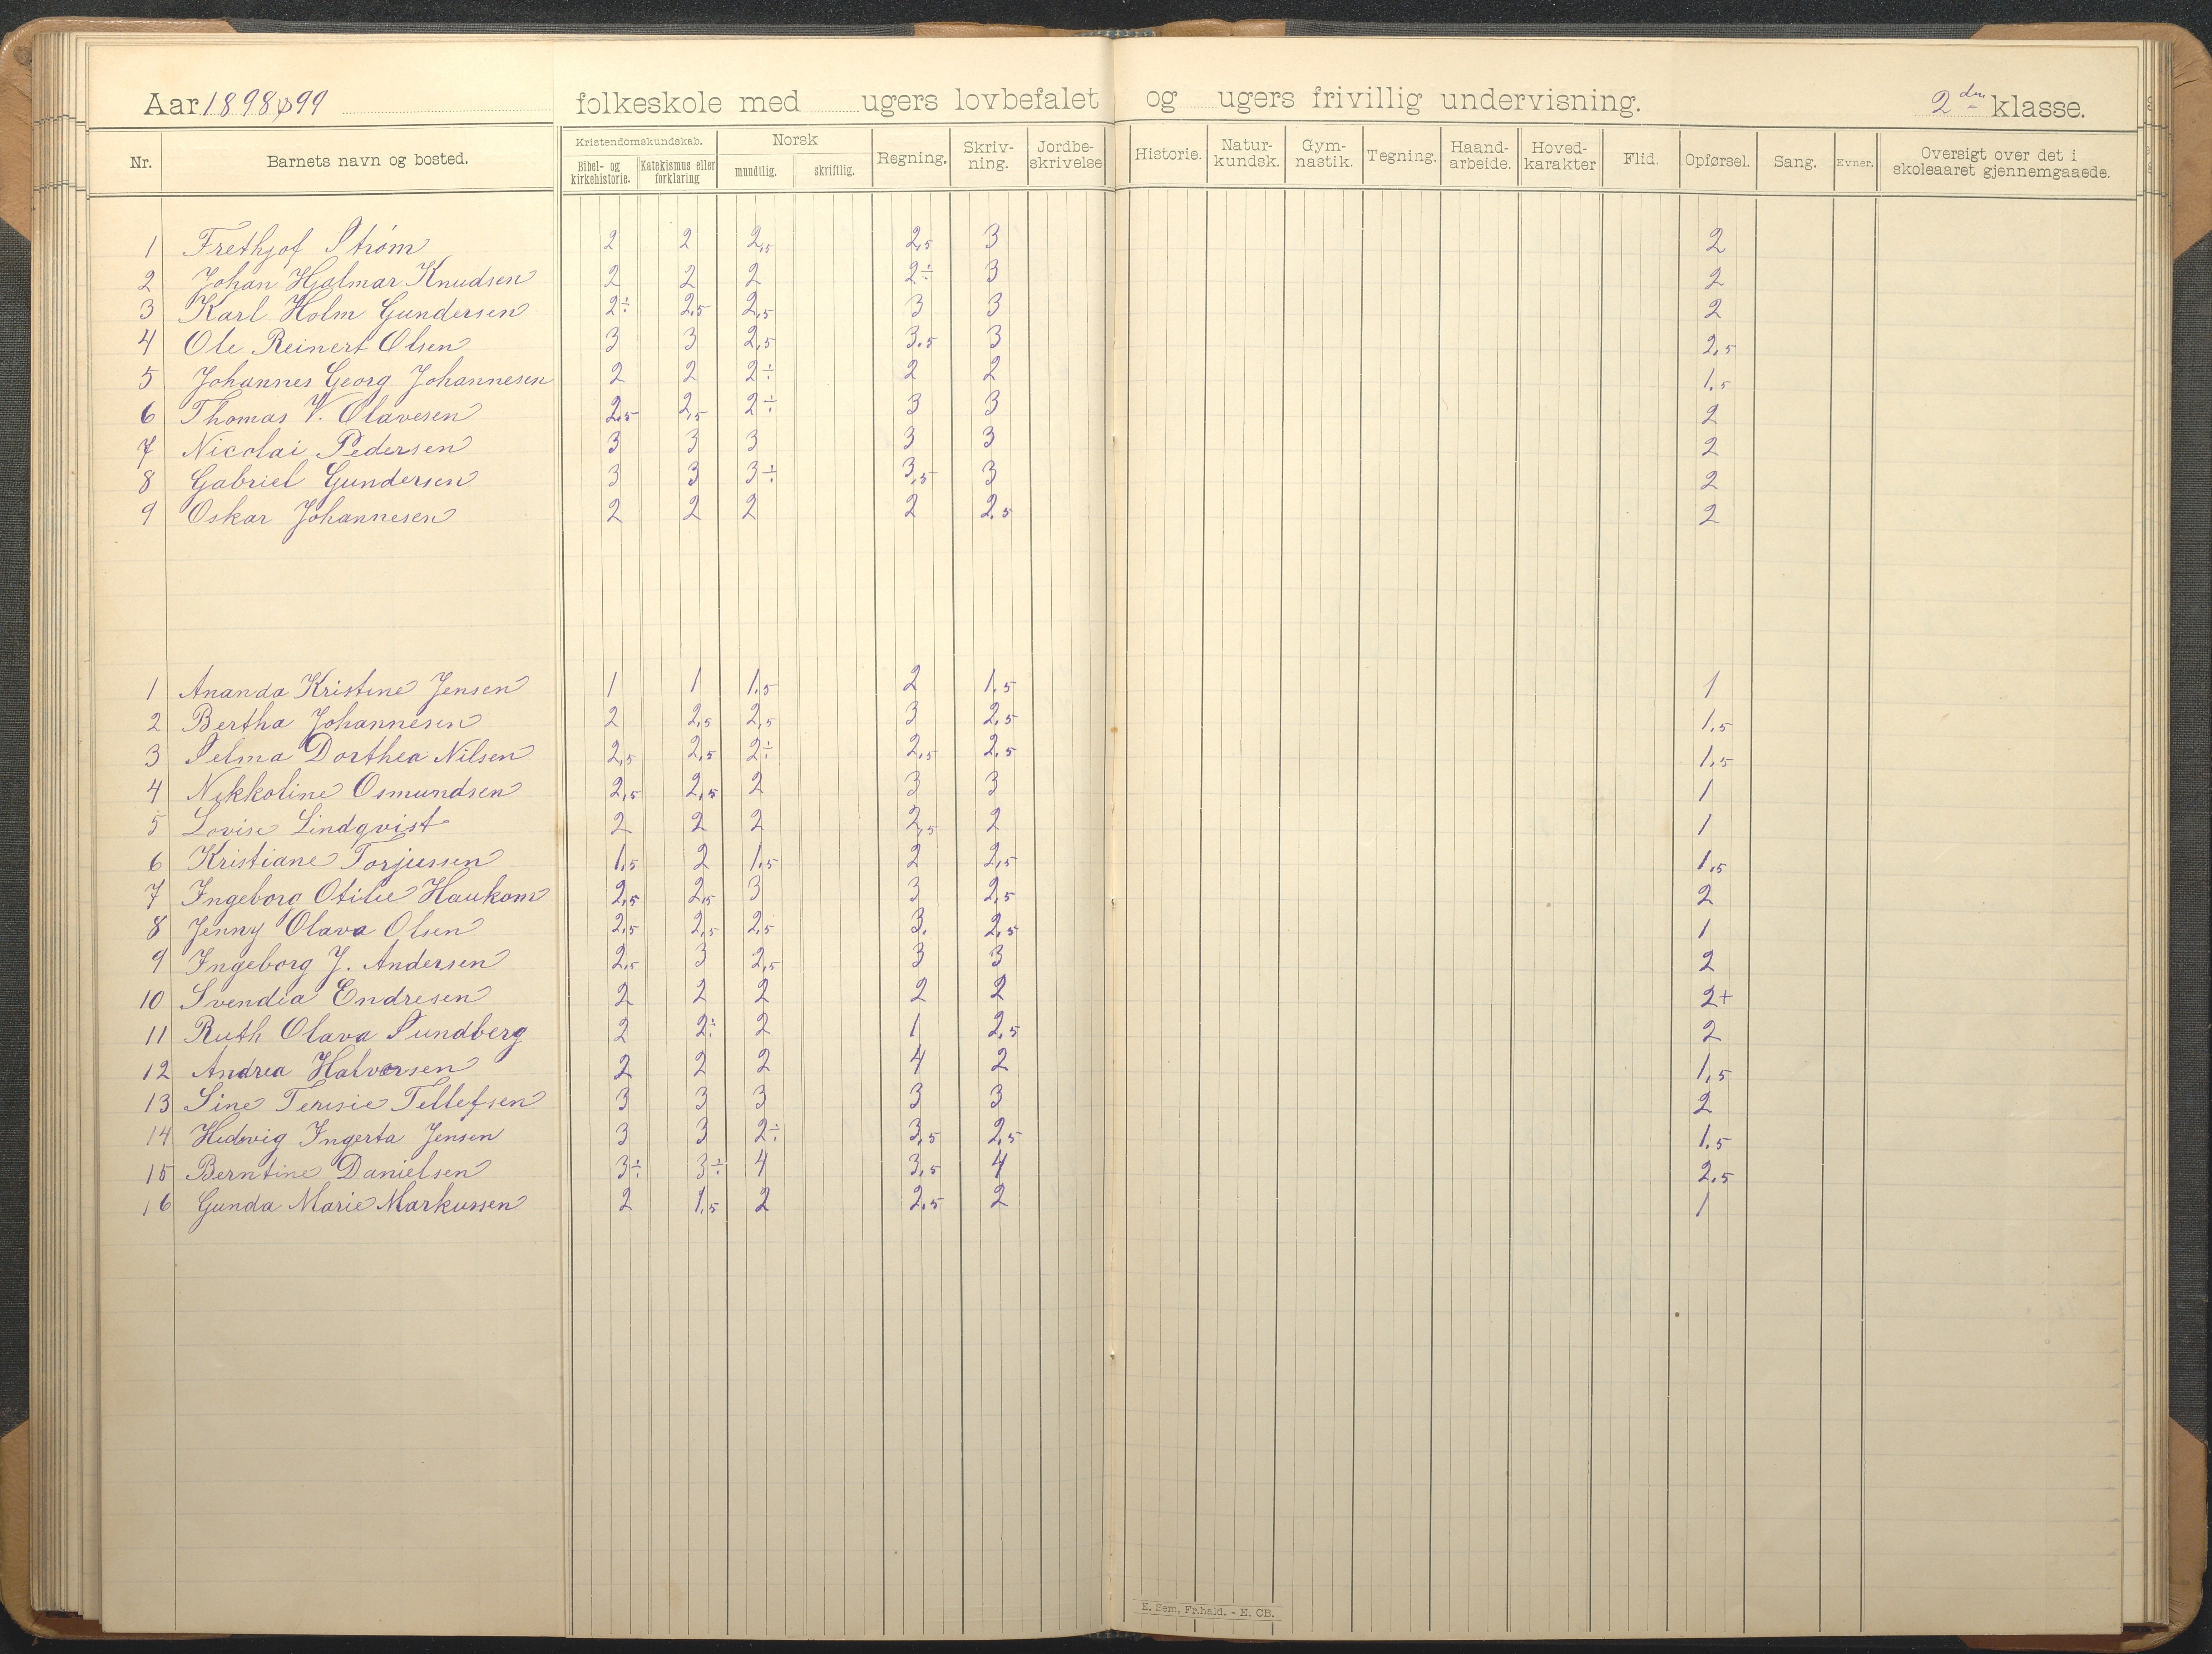 Aar 1898 99 folkeskole med ugers lovbefalet og ugers frivillig undervisning. 2den klasse.
Nr. Barnets navn og bosted. Kristendomskundskab. Bibel- og kirkehistorie. Katekismus eller forklaring Norsk mundtlig. skriftlig. Regning. Skriv-ning. Jordbe-skrivelse Historie. Natur-kundsk. Gym-nastik. Tegning. Haand-arbeide. Hoved-karakter Flid. Opførsel. Sang. Evner. Oversigt over det i skoleaaret gjennemgaaede.
1 Frethjof Strøm 2 2 2,5 2,5 3 2
2 Johan Hjalmar Knudsen 2 2 2 2÷ 3 2
3 Karl Holm Gundersen 2÷ 2,5 2,5 3 3 2
4 Ole Reinert Olsen 3 3 2,5 3.5 3 2,5
5 Johannes Georg Johannesen 2 2 2÷ 2 2 1,5
6 Thomas V. Olavesen 2,5 2,5 2÷ 3 3 2
7 Nicolai Pedersen 3 3 3 3 3 2
8 Gabriel Gundersen 3 3 3÷ 3,5 3 2
9 Oskar Johannesen 2 2 2 2 2,5 2
1 Ananda Kristine Jensen 1 1 1,5 2 1,5 1
2 Bertha Johannesen 2 2,5 2,5 3 2,5 1,5
3 Selma Dorthea Nilsen 2,5 2,5 2÷ 2,5 2,5 1,5
4 Nikkoline Osmundsen 2,5 2,5 2 3 3 1
5 Lovise Lindqvist 2 2 2 2,5 2 1
6 Kristiane Torjussen 1,5 2 1,5 2 2,5 1,5
7 Ingeborg Otilie Haukom 2,5 2,5 3 3 2,5 2
8 Jenny Olava Olsen 2,5 2,5 2,5 3. 2,5 1
9 Ingeborg J. Andersen 2,5 3 2,5 3 3 2
10 Svendia Endresen 2 2 2 2 2 2+
11 Ruth Olava Sundberg 2 2÷ 2 1 2,5 2
12 Andrea Halvorsen 2 2 2 4 2 1,5
13 Sine Teresie Tellefsen 3 3 3 3 3 2
14 Hedvig Ingerta Jensen 3 3 2÷ 3,5 2,5 1,5
15 Berntine Danielsen 3÷ 3÷ 4 3,5 4 2,5
16 Gunda Marie Markussen 2 1,5 2 2,5 2 1
E. Sem, Fr.hald. - E. CB.